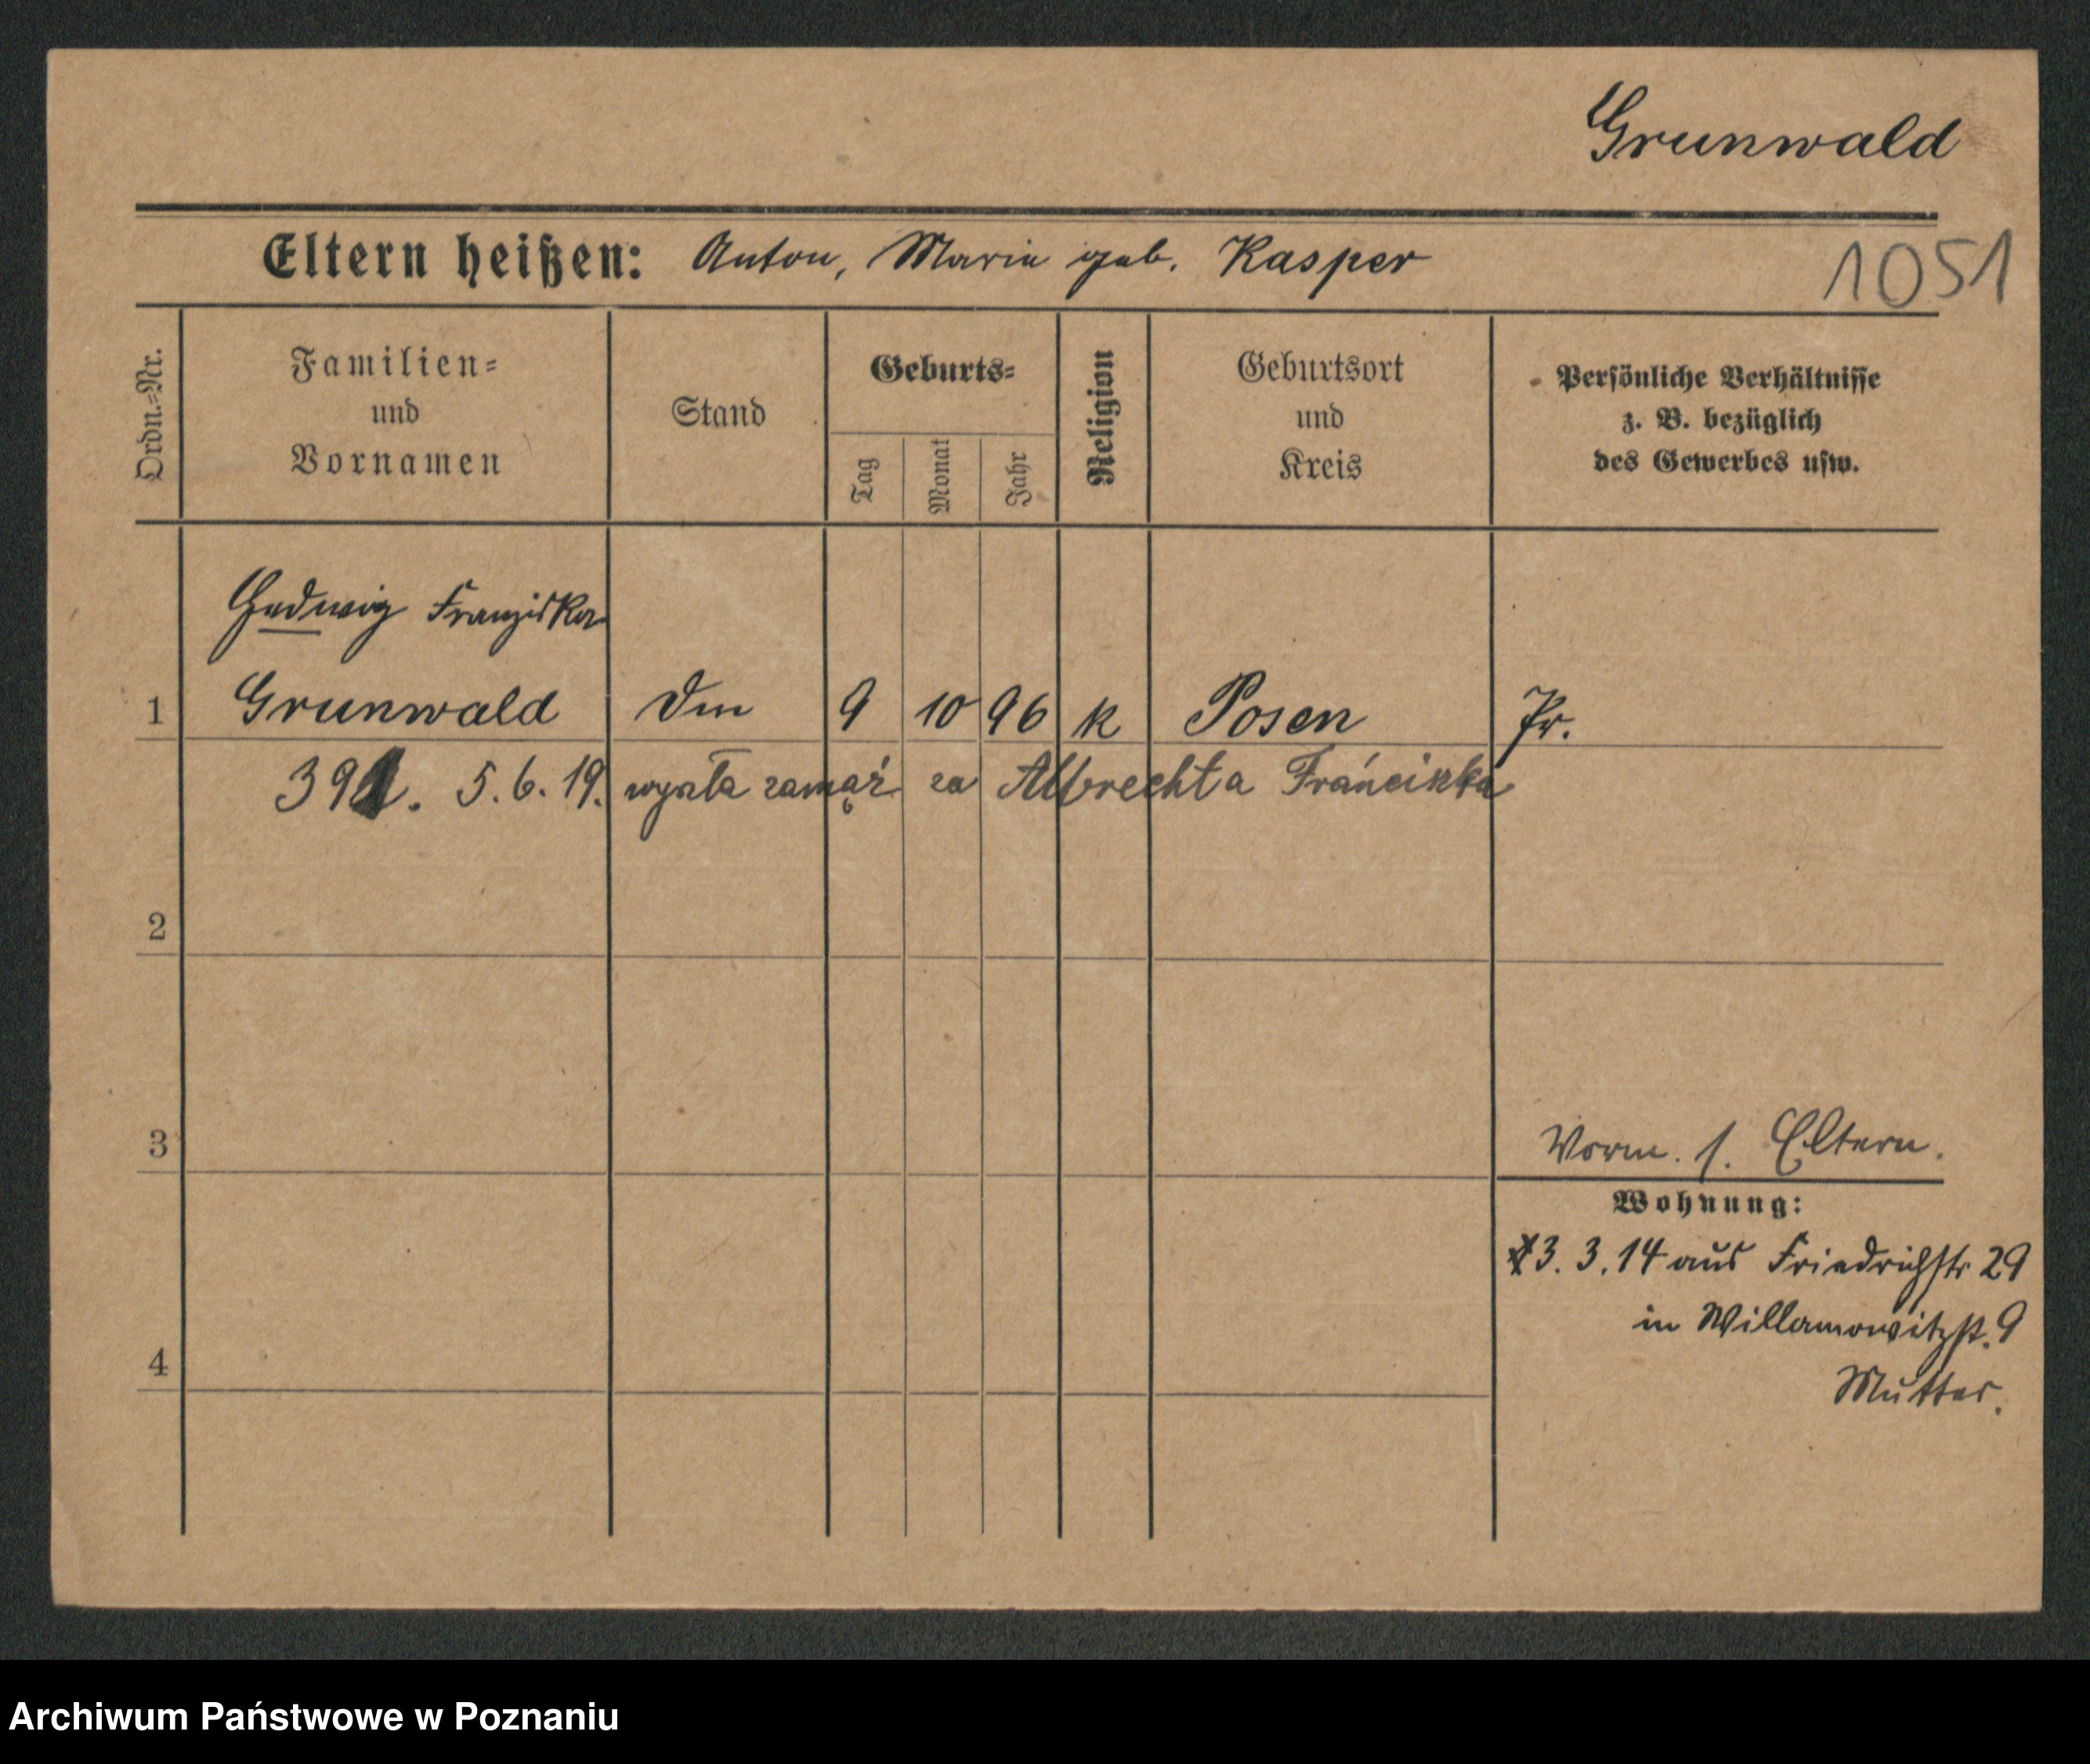 Grunwald
Eltern heißen: Anton, Marie geb. Kasper
1051
Ordn.-Nr.
Familien-
und
Vornamen
Stand
Geburts-
Tag
Monat
Jahr
Religion
Geburtsort
und
Kreis
Persönliche Verhältnisse
z. B. bezüglich
des Gewerbes usw.
Hedwig Franziska
1 Grunwald 9 10 96 k Posen Pr.
5.6.19. wyszła zamąż za Albrechta Franciszka
2
3
Vorm. s. Eltern.
Wohnung:
3.3.14 aus Friedrichstr 29
in Willamowitzst. 9
Mutter.
4
Archiwum Państwowe w Poznaniu